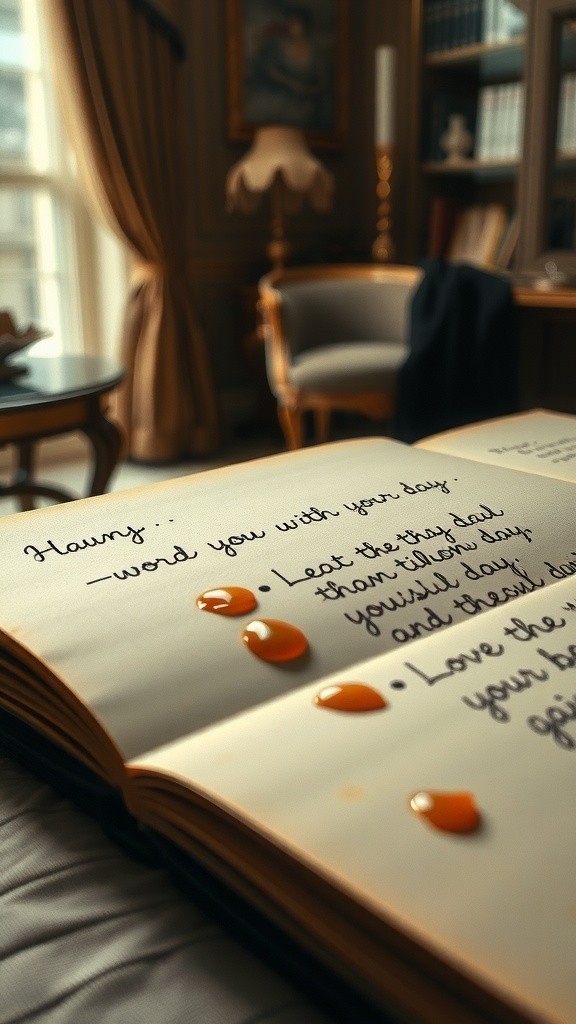 Haung...
—word you with your day.
• Leat the thy daul
than tikon day,
youisiil day;
and theoul dai
• Love the w
your bo
gain